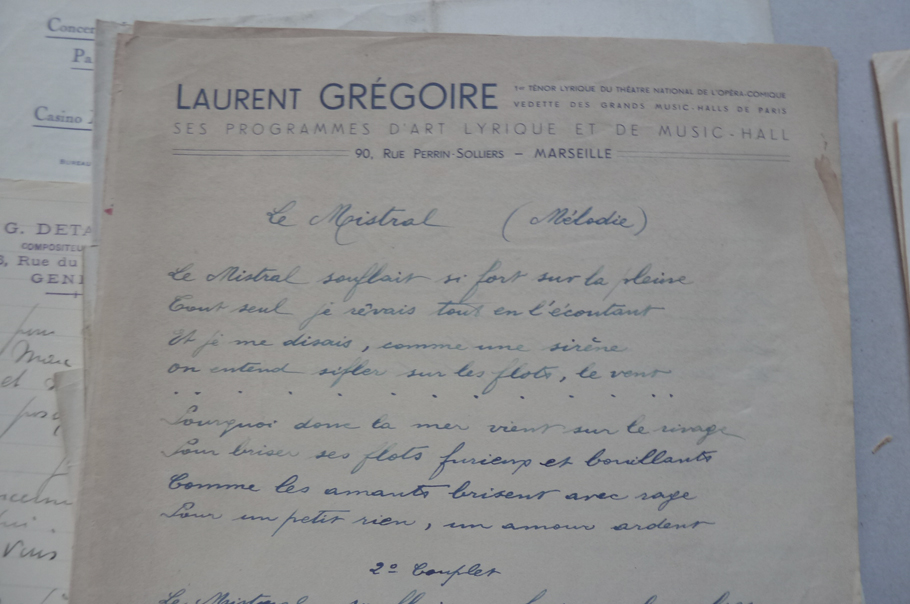 Concer
Pa
Casino
BUREAU
G. DETA
COMPOSITEU
8, Rue du
GEN
pour
et
LAURENT GRÉGOIRE
1er TÉNOR LYRIQUE DU THÉATRE NATIONAL DE L'OPÉRA-COMIQUE
VEDETTE DES GRANDS MUSIC-HALLS DE PARIS
SES PROGRAMMES D'ART LYRIQUE ET DE MUSIC-HALL
90, RUE PERRIN-SOLLIERS – MARSEILLE
Le Mistral (Mélodie)
Le Mistral soufflait si fort sur la pleine
Tout seul je rêvais tout en l'écoutant
Et je me disais, comme une sirène
on entend sifler sur les flots, le vent
. . . . . . . . . . . .
Pourquoi donc la mer vient sur le rivage
Pour briser ses flots furieux et bouillants
Comme les amants brisent avec rage
Pour un petit rien, un amour ardent
2e Couplet
Le Mistral